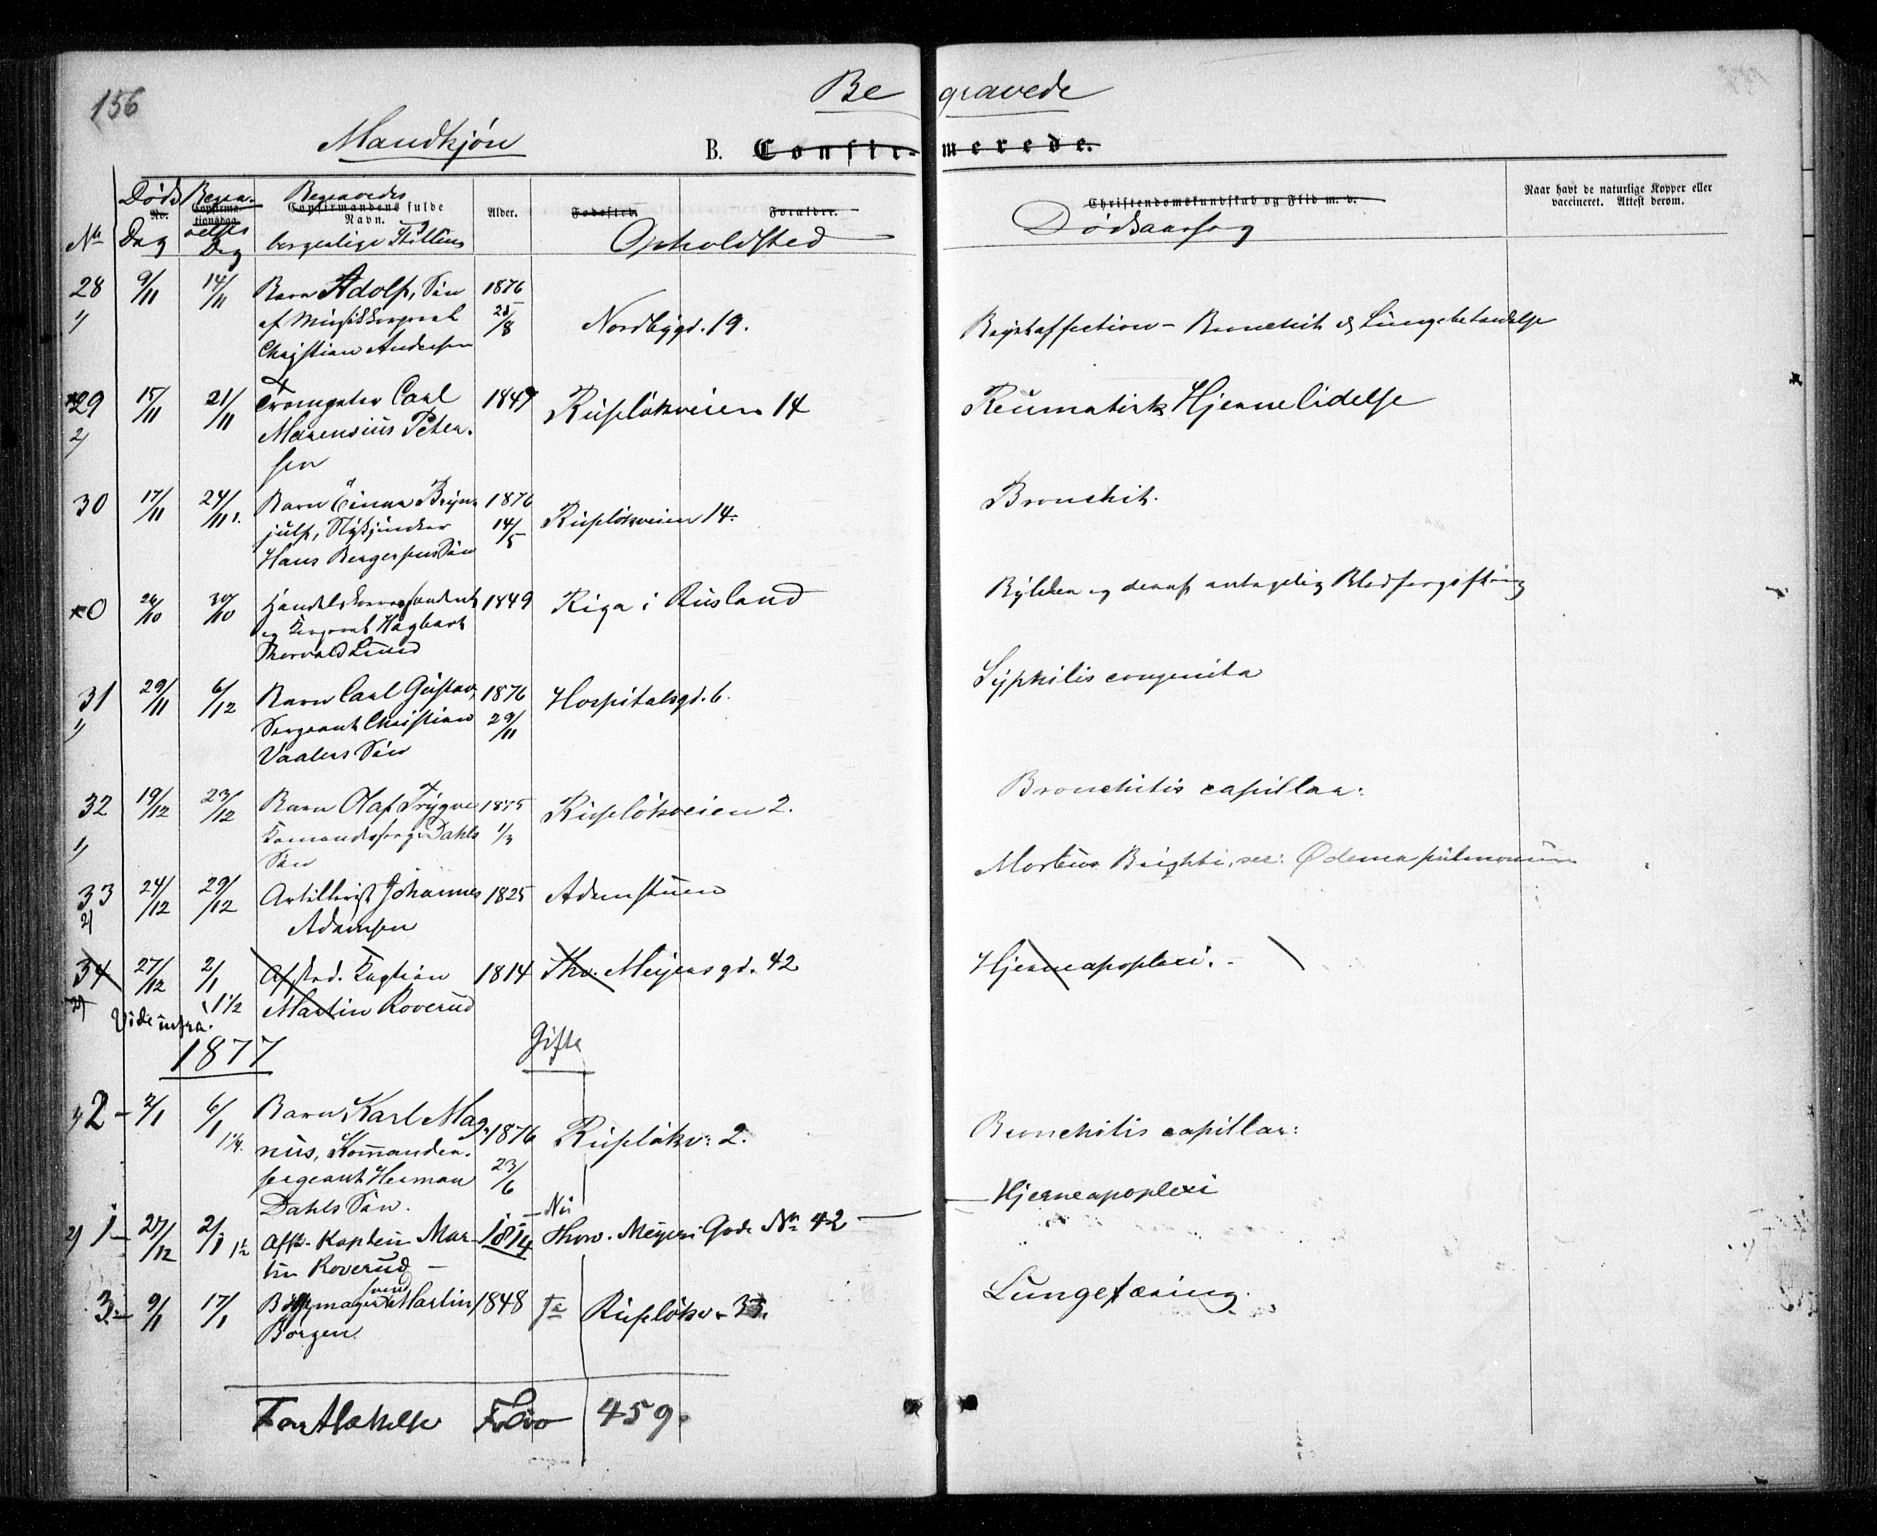 156
Begravede
Mandkjøn
B. Confirmerede.
Døds Begra- Begravedes
No. Confirmationsdag Confirmandens fulde Navn. Alder. Fødested. Forældre. Christendomskundskab og Flid m. v. Naar havt de naturlige Kopper eller vaccineret. Attest derom.
No Dag velses Dag borgerlige Stilling Opholdsted Dødsaarsag
28 9/11 14/11 Barn Adolf, Søn 1876
1) af Musikkorporal 28/8 Nordbygd. 19. Bronchit og Lungebetændelse
Christian Andersen
29 15/11 21/11 Trompeter Carl 1849 Rusløkveien 14 Reumatisk Hjernelidelse
2) Marensius Peter-
sen
30 17/11 24/11 Barn Einar Bryn- 1876 Bronchit.
julf, Stykjunker 14/5 Rusløkveien 14.
Hans Bergersens Søn
0 26/10 30/10 Handelskorrespondent 1849 Riga i Rusland Bylder og deraf antagelig Blodforgiftning
og Korporal Hagbart
Thorvald Lund
31 29/11 6/12 Barn Carl Gustav, 1876 Hospitalsgd. 6. Syphilis congenita
1) Sergeant Christian 29/11
Vaalers Søn
32 19/12 23/12 Barn Olaf Trygve 1875 Rusløkveien 2. Bronchitis capillar:
1) Komandersergt Dahls 1/3
Søn
33 24/12 29/12 Artillerist Johannes 1825 Adamstuen Morbus Brighti, sec: Ødema pulmonum
2) Adamsen
34 27/12 2/1 Afsked. Kaptein 1814 Thv. Meyersgd. 42 Hjerneapoplexi.
2) 1 1/2 Martin Roverud
Vide infra.
1877 Gifte
2 - 2/1 6/1 Barn, Karl Mag- 1876 Rusløkv: 2. Bronchitis capillar:
1 1/4 nus, Kommander-
sergeant Herman 23/6
Dahls Søn.
2) 1 - 27/12 2/1 1 1/2 Afsk. Kaptein Mar- 1814 Nei Thorv. Meyers Gade No 42 — Hjerneapoplexi
tin Roverud —
3. - 9/1 17/1 svend Martin 1848 Ja Rusløkv. 33. Lungetæring.
Borgen
Fortsættelse Folio 459.